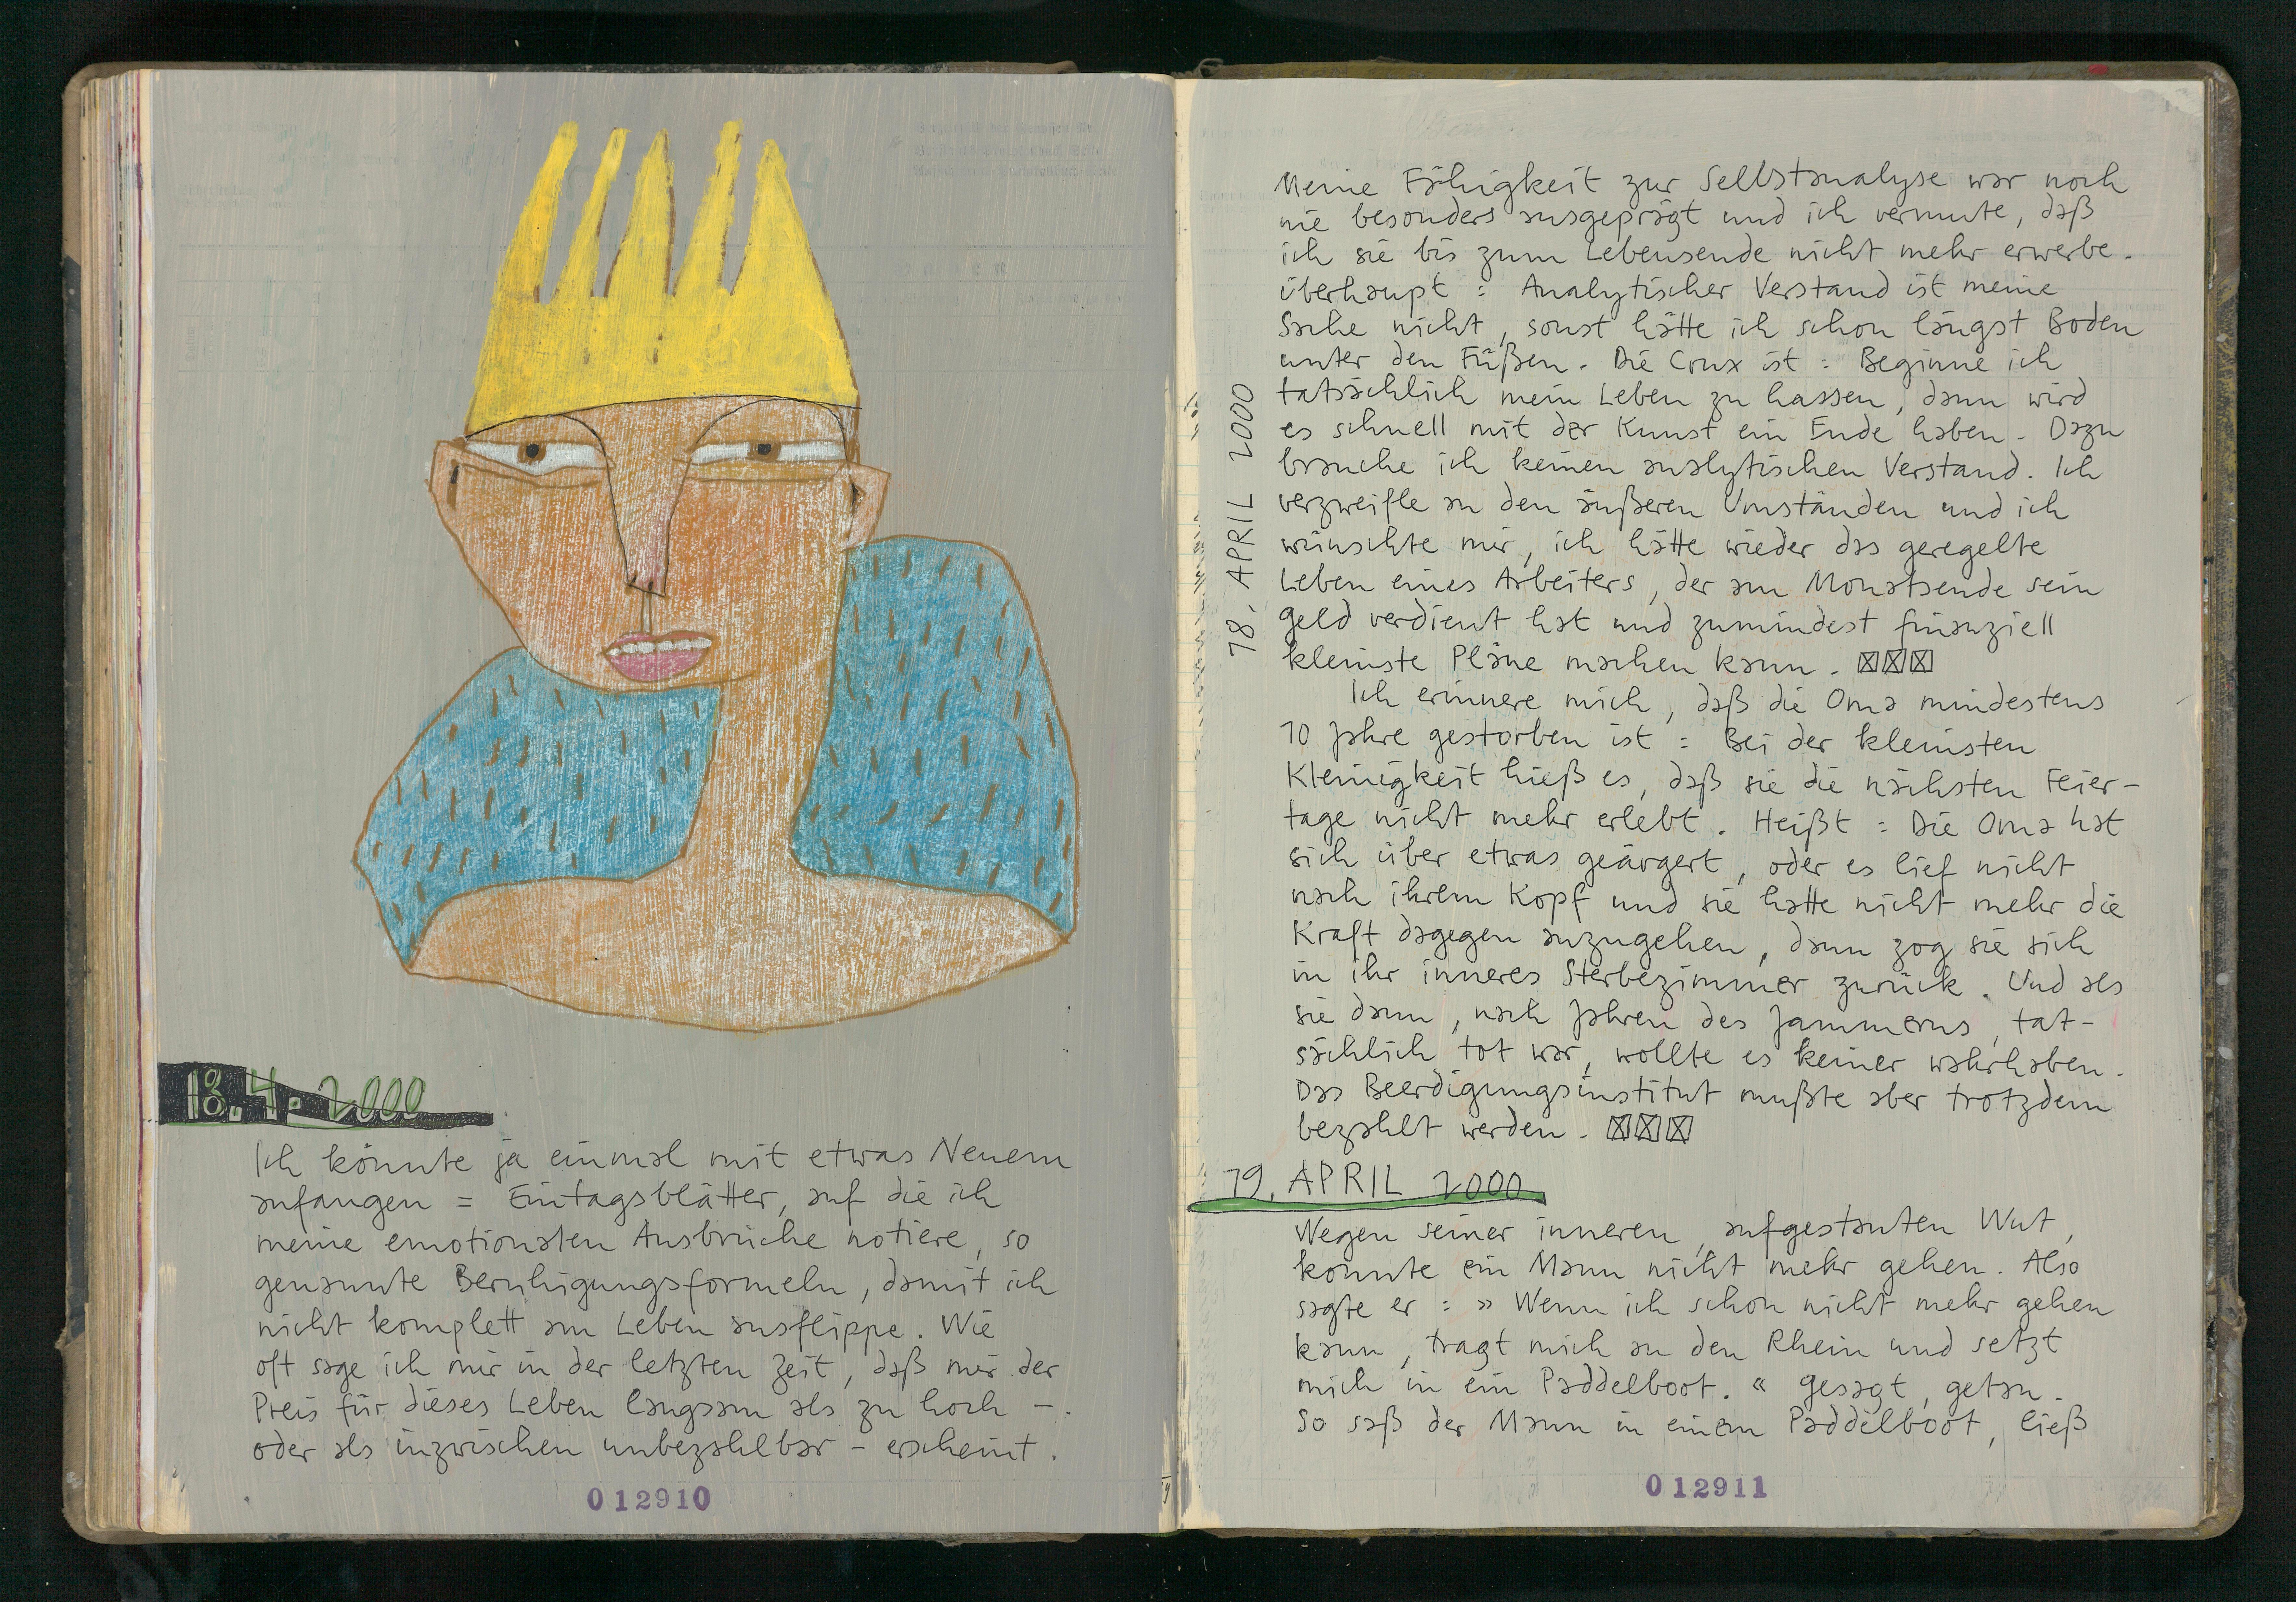 18.4.2000
Ich könnte ja einmal mit etwas Neuem
anfangen = Eintagsblätter, auf die ich
meine emotionalen Ausbrüche notiere, so
genannte Beruhigungsformeln, damit ich
nicht komplett am Leben ausflippe. Wie
oft sage ich mir in der letzten Zeit, daß mir der
Preis für dieses Leben langsam als zu hoch –
oder als inzwischen unbezahlbar – erscheint.
012910
18. APRIL 2000
Meine Fähigkeit zur Selbstanalyse war noch
nie besonders ausgeprägt und ich vermute, daß
ich sie bis zum Lebensende nicht mehr erwerbe.
überhaupt : Analytischer Verstand ist meine
Sache nicht, sonst hätte ich schon längst Boden
unter den Füßen. Die Crux ist : Beginne ich
tatsächlich mein Leben zu hassen, dann wird
es schnell mit der Kunst ein Ende haben. Dazu
brauche ich keinen analytischen Verstand. Ich
verzweifle an den äußeren Umständen und ich
wünschte mir, ich hätte wieder das geregelte
Leben eines Arbeiters, der am Monatsende sein
geld verdient hat und zumindest finanziell
kleinste Pläne machen kann.
Ich erinnere mich, daß die Oma mindestens
10 Jahre gestorben ist : Bei der kleinsten
Kleinigkeit hieß es, daß sie die nächsten Feier-
tage nicht mehr erlebt. Heißt : Die Oma hat
sich über etwas geärgert, oder es lief nicht
nach ihrem Kopf und sie hatte nicht mehr die
Kraft dagegen anzugehen, dann zog sie sich
in ihr inneres Sterbezimmer zurück. Und als
sie dann, nach Jahren des Jammerns, tat-
sächlich tot war, wollte es keiner wahrhaben.
Das Beerdigungsinstitut mußte aber trotzdem
bezahlt werden.
19. APRIL 2000
Wegen seiner inneren, aufgestauten Wut,
konnte ein Mann nicht mehr gehen. Also
sagte er : » Wenn ich schon nicht mehr gehen
kann, tragt mich an den Rhein und setzt
mich in ein Paddelboot. « gesagt, getan.
So saß der Mann in einem Paddelboot, ließ
012911